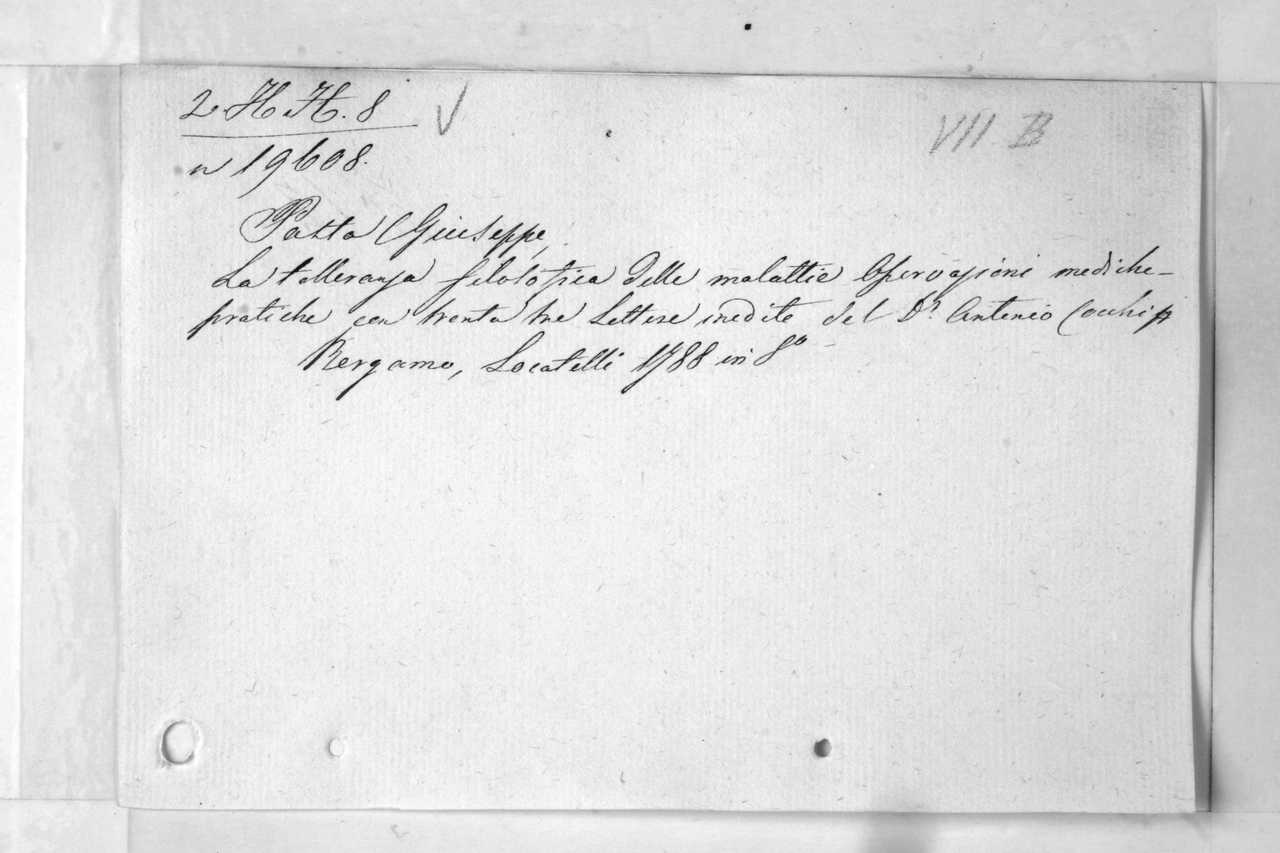 2. H. H. 8 V
VII B
n 19608.
Pasta Giuseppe,
La tolleranza filosofica delle malattie Osservazioni mediche-
pratiche con trenta tre Lettere inedite del Dr. Antonio Cocchi
Bergamo, Locatelli 1788 in 8o